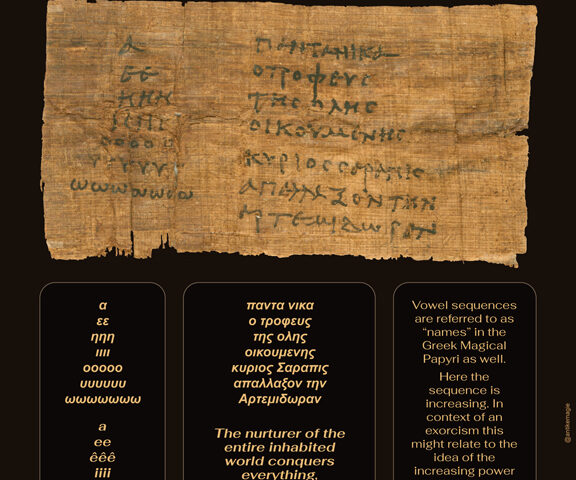 Α
ΕΕ
ΗΗΗ
ΙΙΙΙ
ΟΟΟΟΟ
ΥΥΥΥΥΥ
ωωωωωωω
ΠΑΝΤΑΝΙΚΑ
ΟΤΡΟΦΕΥϹ
ΤΗϹΟΛΗϹ
ΟΙΚΟΥΜΕΝΗϹ
ΚΥΡΙΟϹϹΑΡΑΠΙϹ
ΑΠΑΛΛΑΞΟΝΤΗΝ
ΑΡΤΕΜΙΔωΡΑΝ
α
εε
ηηη
ιιιι
οοοοο
υυυυυυ
ωωωωωωω
a
ee
êêê
iiii
παντα νικα
ο τροφευς
της ολης
οικουμενης
κυριος Σαραπις
απαλλαξον την
Αρτεμιδωραν
The nurturer of the
entire inhabited
world conquers
everything,
Vowel sequences
are referred to as
“names” in the
Greek Magical
Papyri as well.
Here the
sequence is
increasing. In
context of an
exorcism this
might relate to the
idea of the
increasing power
@antikemagie